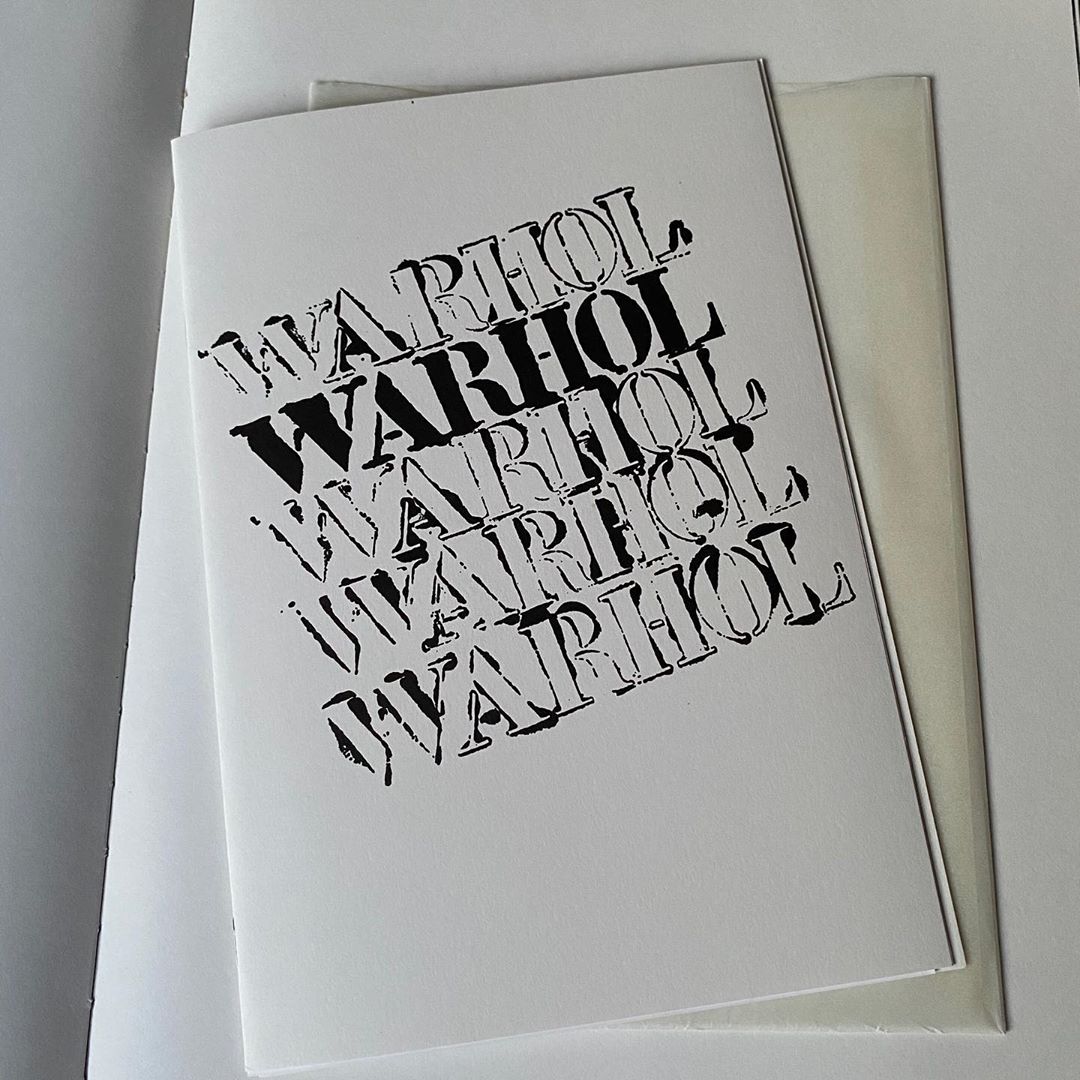 WARHOL
WARHOL
WARHOL
WARHOL
WARHOL